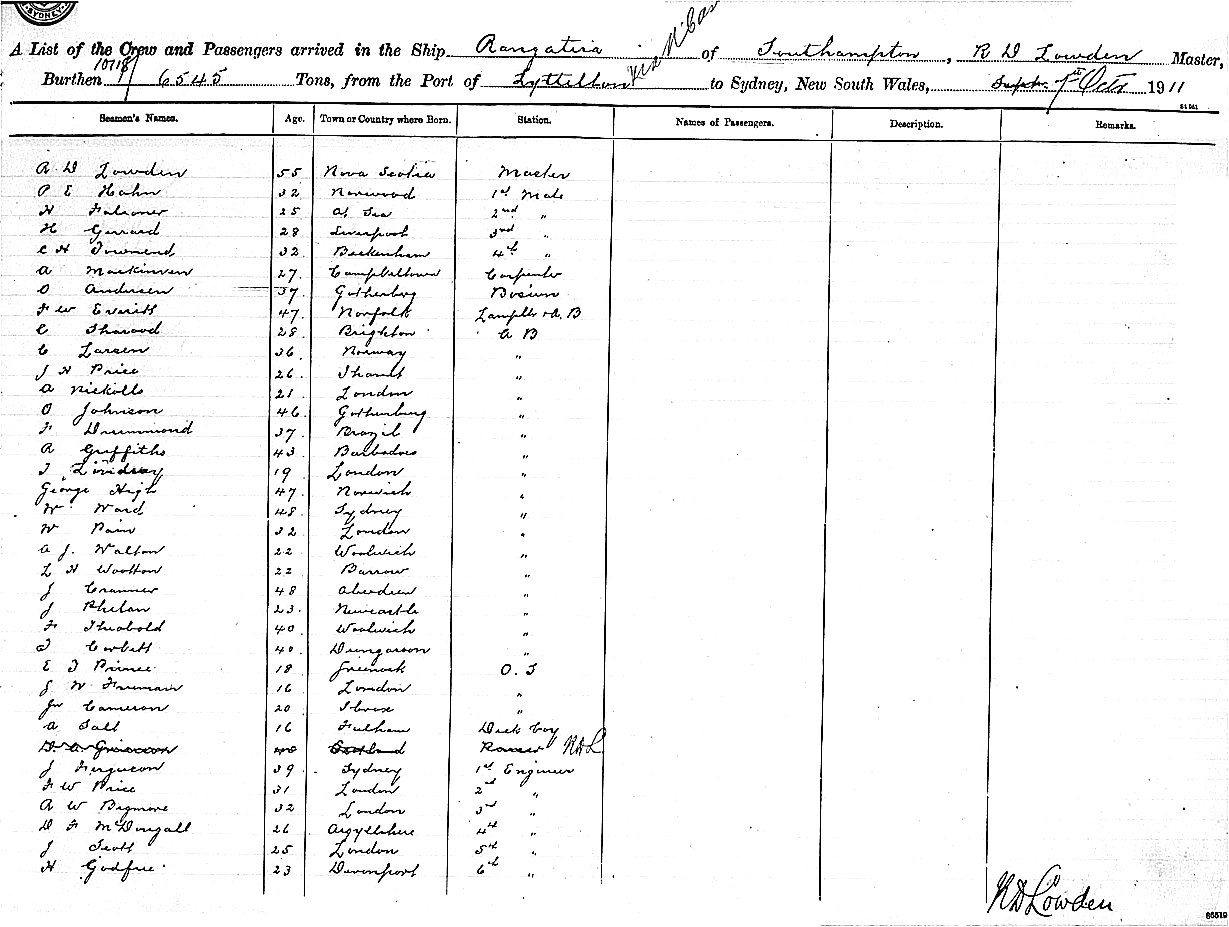 SYDNEY
via N'Cas
A List of the Crew and Passengers arrived in the Ship Rangatira of Southampton, R D Lowden Master,
10118
Burthen 6545 Tons, from the Port of Lyttelton to Sydney, New South Wales, 1st Octr 1911
Seamen's Names. Age. Town or Country where Born. Station. Names of Passengers. Description. Remarks.
R D Lowden 55 Nova Scotia Master
P E Hahn 32 Norwood 1st Mate
H Falconer 25 At Sea 2nd "
H Gerrard 28 Liverpool 3rd "
C H Townend 32 Beckenham 4th "
A Mackinven 27. Campbeltown Carpenter
O Andersen 37. Gothenburg Bosun
F W Everitt 47. Norfolk Lamps & A. B
C Tharood 28. Brighton A B
C Larsen 36 Norway "
J H Price 26. Thanet "
A Nickolls 21 London "
O Johnson 46. Gothenburg "
F Drummond 37. Brazil "
A Griffiths 43 Barbadoes "
T Lindsay 19. London "
George High 47. Norwich "
W Ward 48. Sydney "
W Pain 32 London "
A J. Walton 22 Woolwich "
L H Wootton 22 Barrow "
J Cranner 48 Aberdeen "
J Phelan 23. Newcastle "
F Theobold 40 Woolwich "
T Corbett 40 Dungarvon "
E J Prince 18 Greenock O. S
J W Freeman 16 London "
Jn Cameron 20 Ibrox "
A Salt 16 Fulham Deck boy
D. A Grierson 40 Scotland RDL
J Ferguson 39 Sydney 1st Engineer
F W Price 31 London 2nd "
A W Bigmore 32 London 3rd "
D F McDougall 26 Argyllshire 4th "
J Scott 25 London 5th "
H Godfree 23 Devonport 6th "
RD Lowden